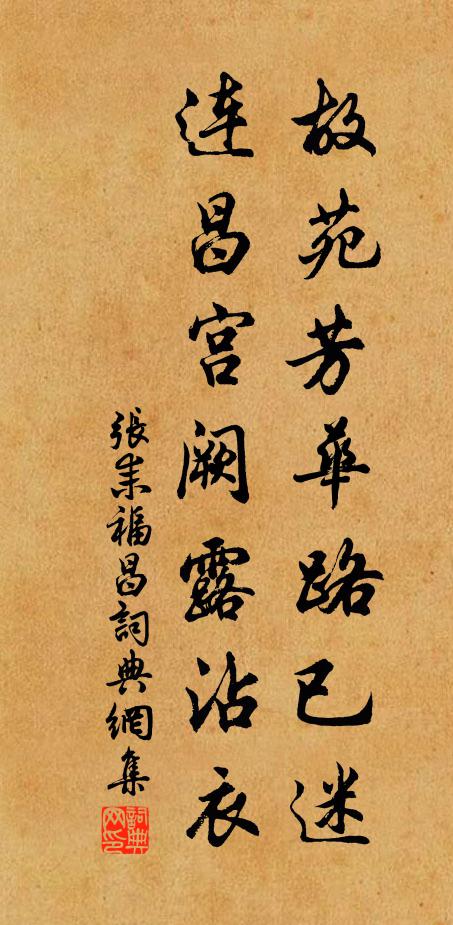 故苑芳華路已迷
連昌宮闕露沾衣
張耒福昌詞典網集
詞典網印